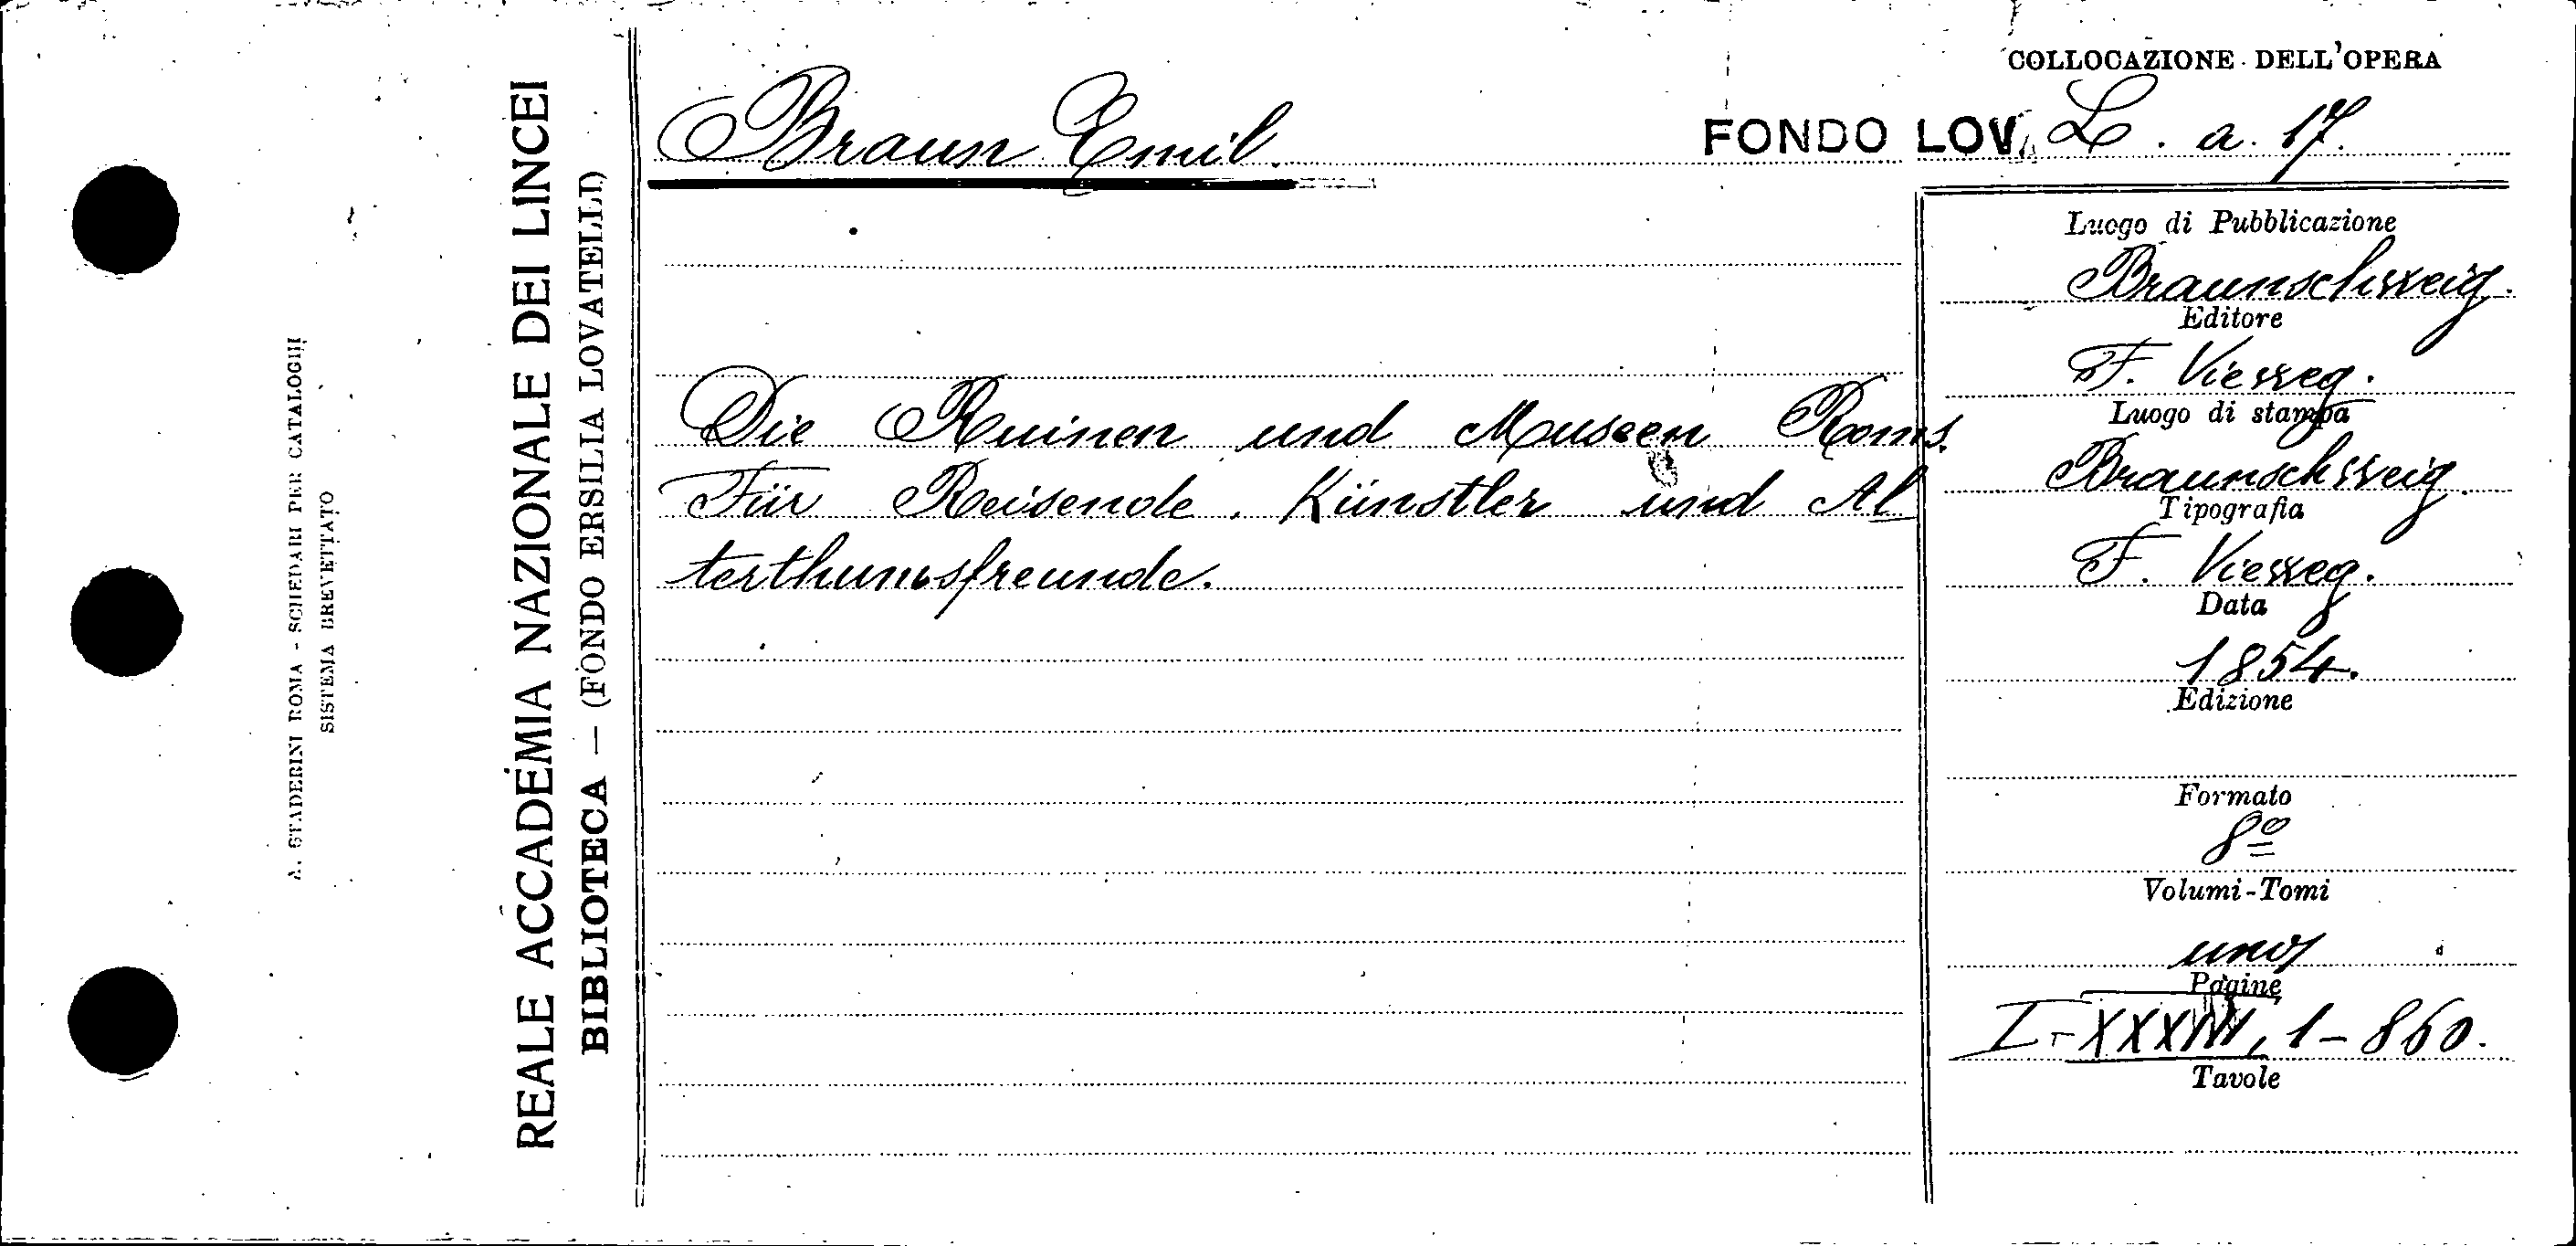 A. STADERINI ROMA - SCHEDARI PER CATALOGHI
SISTEMA BREVETTATO
REALE ACCADEMIA NAZIONALE DEI LINCEI
BIBLIOTECA — (FONDO ERSILIA LOVATELLI)
Braun Emil.
Die Ruinen und Museen Roms.
Für Reisende, Künstler und Al
terthumsfreunde.
COLLOCAZIONE DELL'OPERA
FONDO LOV. L. a. 17.
Luogo di Pubblicazione
Braunschweig.
Editore
F. Vieweg.
Luogo di stampa
Braunschweig.
Tipografia
F. Vieweg.
Data
1854.
Edizione
Formato
8º
Volumi-Tomi
uno
Pagine
I-XXXIII, 1-860.
Tavole